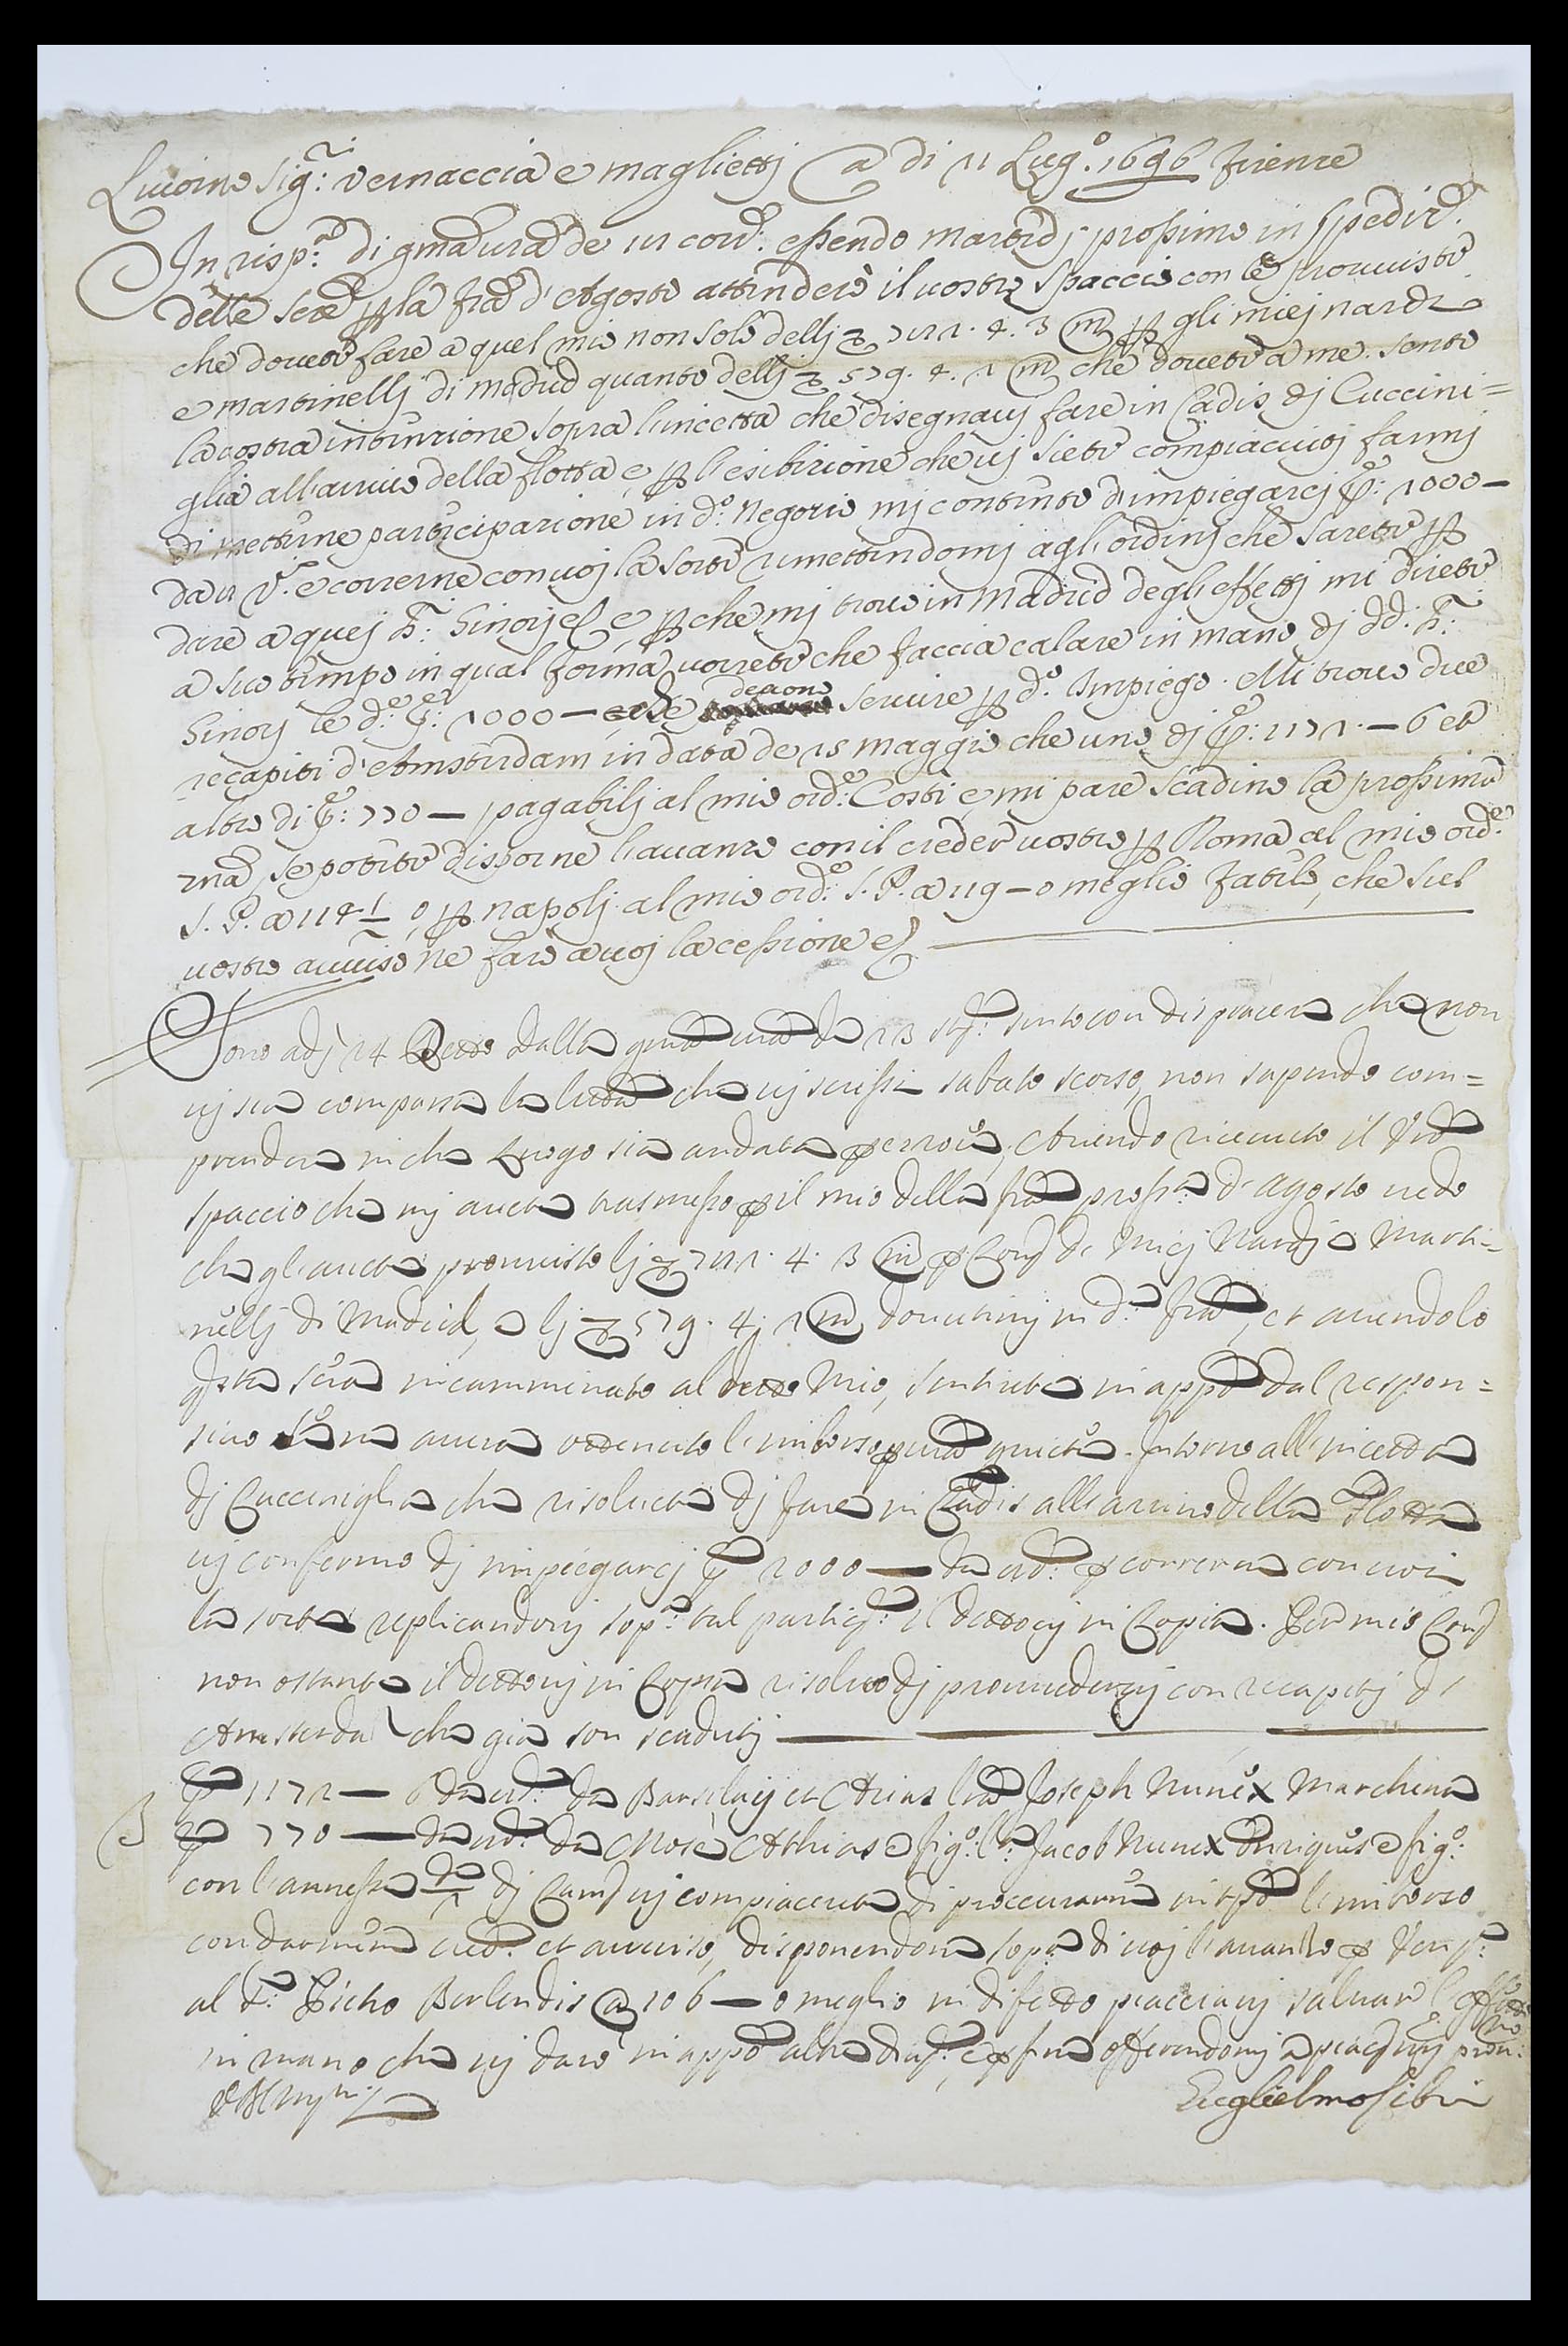 Livorno Sig:ri Vernaccia e Magliettj A di 11 Lug:o 1696 Firenze
In risp:ta di gma vra de 11 corr:e essendo martedj prossimo in spedir:e
delle fere p la fra d'Agosto attenderò il vostro spaccio con le provviste
che dovete fare a quel mio non solo dellj 7111. 4. 3 m p gli miej nardi
e Martinellj di Madrid quanto dellj 579. 4. 1 m che dovete a me. Sento
la vostra intenzione sopra l'incetta che disegnavj fare in Cadis dj Cuccini=
glia all'arrivo della flotta e p l'esibizione che vj siete compiaciutj farmj
di mettere participazione in d:o negozio mj contento d'impiegarcj p:e 1000 —
da 8 R:i e correrne con voj la sorte rimettendomj aglj ordinj che sarete p
dare a quej SS:ri Ginorj e p che mj trovo in Madrid deglj effettj mi direte
a suo tempo in qual forma vorrete che faccia calare in mano dj dd:i SS:ri
Ginorj le d:e p:e 1000 — che devono servire p d:o impiego. Mi trovo due
recapiti d'Amsterdam in data de 15 Maggio che uno dj p:e 1171. — 6 et
altro di p:e 770 — pagabilj al mio ord:e Costì e mi pare scadino la prossima
se potete disporne l'avanzo con il creder vostro p Roma al mio ord:e
S. P. a 114 1/2 o p napolj al mio ord:e S. P. a 119 — o meglio fatelo, che s'el
vostro avviso ne farò a voj la cessione
Sono adj 14 detto dalla gma vra de 13 st:e sento con dispiacere che non
vj sia comparsa la lettera che vj scrissi sabato scorso, non sapendo com=
prendere in che luogo sia andata p errore, Avendo ricevuto il vro
spaccio che mj avete trasmesso p il mio della fra pross:a d'agosto vedo
che gl'avete provvisto lj 7111. 4. 3 m p Conto de Miej Nardj e Marti=
nellj di Madrid, e lj 579. 4. 1 m dovutimj in d:a fra, et avendolo
qsta sera incamminato al detto Mio, sentirete in appo dal respon=
sivo se ne averà ottenuto l'imborso p vra quiete. Intorno all'incetta
dj Cucciniglia che risolvete dj fare in Cadis all'arrivo della Flotta
vj confermo dj impiegarcj p:e 1000 — da 8 R:i p correrne con voi
la sorte replicandovj sop:a tal partic:e il dettovj in Copia. Per mio Conto
non ostante il dettovj in Copia risolvo dj provvedervj con recapitj di
Amsterdam che già son scadutj
p:e 1171 — 6 da 8 R:i da Barsilaij et Arias l:ra Joseph Nunex Marchena
p:e 770 — da 8 R:i da Mosè Athias e fig:o l:ra Jacob Nunex Enriques e fig:o
con l'annessa dj Camb vj compiacerete di proccurarne in tpo l'imborso
con darmene cred:o et avviso, disponendone sop:a di voj l'avanzo p Ven:a
al S:r Pietro Berlendis a 106 — o meglio in difetto piacciavj salvar l'effetto
in mano che vj darò in appo altra disp:e, e p fine offerendomj a piacer vj pron:
Guglielmo Sibri